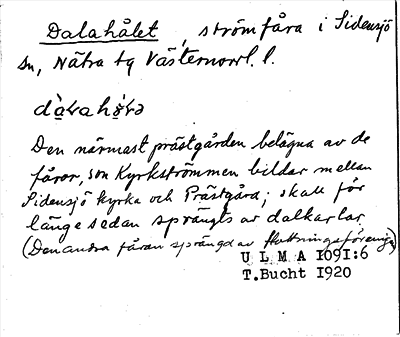 Dalahålet, strömfåra i Sidensjö
sn, Nätra tg Västernorrl. l.
Den närmast prästgården belägna av de
fåror, som Kyrkströmmen bildar mellan
Sidensjö kyrka och Prästgård; skall för
länge sedan sprängts av dalkarlar
(Den andra fåran sprängd av flottningsförening)
U L M A 1091:6
T.Bucht 1920